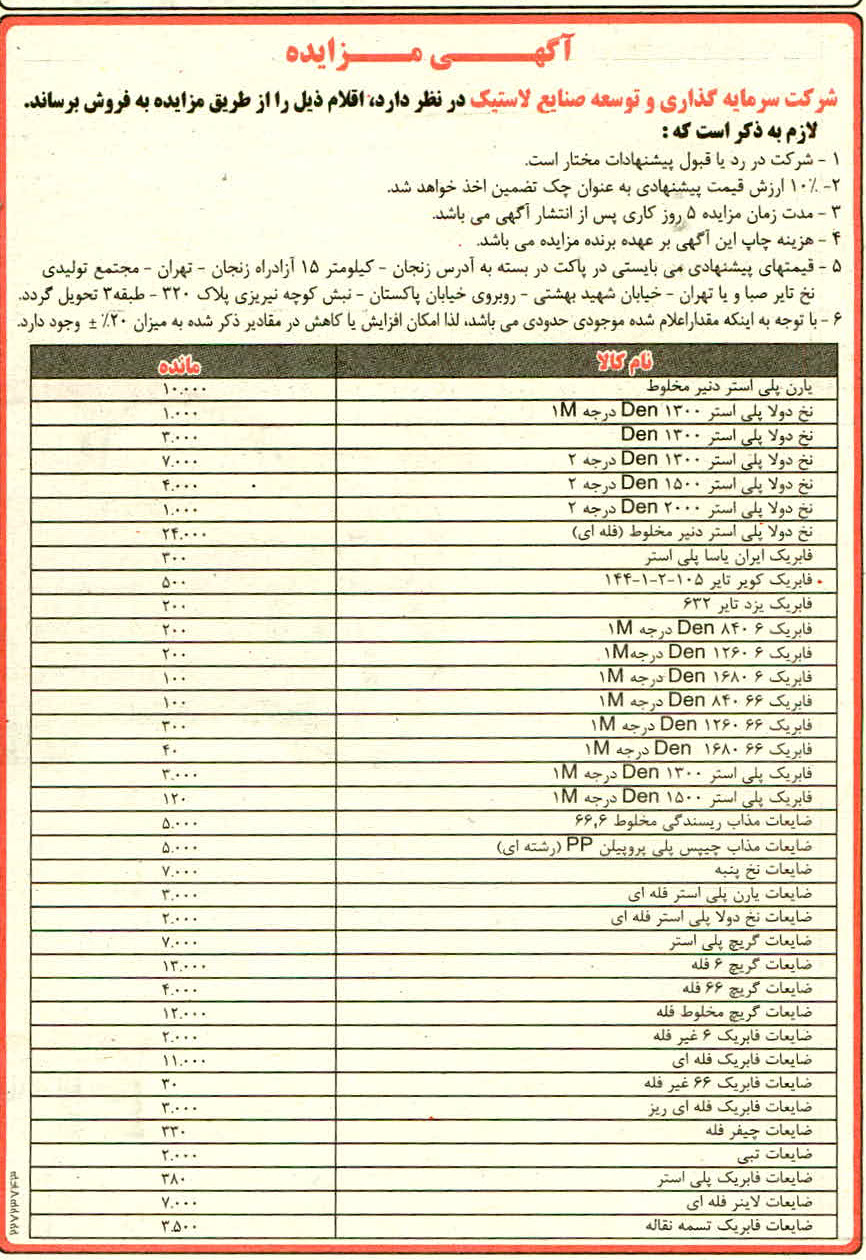 آگهـــی مـــزایده
شرکت سرمایه گذاری و توسعه صنایع لاستیک در نظر دارد، اقلام ذیل را از طریق مزایده به فروش برساند.
لازم به ذکر است که :
۱ - شرکت در رد یا قبول پیشنهادات مختار است.
۲- ۱۰٪ ارزش قیمت پیشنهادی به عنوان چک تضمین اخذ خواهد شد.
۳ - مدت زمان مزایده ۵ روز کاری پس از انتشار آگهی می باشد.
۴ - هزینه چاپ این آگهی بر عهده برنده مزایده می باشد.
۵ - قیمتهای پیشنهادی می بایستی در پاکت در بسته به آدرس زنجان - کیلومتر ۱۵ آزادراه زنجان - تهران - مجتمع تولیدی
نخ تایر صبا و یا تهران - خیابان شهید بهشتی - روبروی خیابان پاکستان - نبش کوچه نیریزی پلاک ۳۲۰ - طبقه۳ تحویل گردد.
۶ - با توجه به اینکه مقداراعلام شده موجودی حدودی می باشد، لذا امکان افزایش یا کاهش در مقادیر ذکر شده به میزان ۲۰٪ ± وجود دارد.
نام کالا مانده
یارن پلی استر دنیر مخلوط ۱۰.۰۰۰
نخ دولا پلی استر ۱۳۰۰ Den درجه ۱M ۱.۰۰۰
نخ دولا پلی استر ۱۳۰۰ Den ۳.۰۰۰
نخ دولا پلی استر ۱۳۰۰ Den درجه ۲ ۷.۰۰۰
نخ دولا پلی استر ۱۵۰۰ Den درجه ۲ ۴.۰۰۰
نخ دولا پلی استر ۲۰۰۰ Den درجه ۲ ۱.۰۰۰
نخ دولا پلی استر دنیر مخلوط (فله ای) ۲۴.۰۰۰
فابریک ایران یاسا پلی استر ۳۰۰
فابریک کویر تایر ۱۰۵-۲-۱-۱۴۴ ۵۰۰
فابریک یزد تایر ۶۳۲ ۲۰۰
فابریک ۶ ۸۴۰ Den درجه ۱M ۲۰۰
فابریک ۶ ۱۲۶۰ Den درجه۱M ۲۰۰
فابریک ۶ ۱۶۸۰ Den درجه ۱M ۱۰۰
فابریک ۶۶ ۸۴۰ Den درجه ۱M ۱۰۰
فابریک ۶۶ ۱۲۶۰ Den درجه ۱M ۳۰۰
فابریک ۶۶ ۱۶۸۰ Den درجه ۱M ۴۰
فابریک پلی استر ۱۳۰۰ Den درجه ۱M ۳.۰۰۰
فابریک پلی استر ۱۵۰۰ Den درجه ۱M ۱۲۰
ضایعات مذاب ریسندگی مخلوط ۶۶,۶ ۵.۰۰۰
ضایعات مذاب چیپس پلی پروپیلن PP (رشته ای) ۵.۰۰۰
ضایعات نخ پنبه ۷.۰۰۰
ضایعات یارن پلی استر فله ای ۳.۰۰۰
ضایعات نخ دولا پلی استر فله ای ۲.۰۰۰
ضایعات گریچ پلی استر ۷.۰۰۰
ضایعات گریچ ۶ فله ۱۳.۰۰۰
ضایعات گریچ ۶۶ فله ۴.۰۰۰
ضایعات گریچ مخلوط فله ۱۲.۰۰۰
ضایعات فابریک ۶ غیر فله ۲.۰۰۰
ضایعات فابریک فله ای ۱۱.۰۰۰
ضایعات فابریک ۶۶ غیر فله ۳۰
ضایعات فابریک فله ای ریز ۳.۰۰۰
ضایعات چیفر فله ۳۳۰
ضایعات تبی ۲.۰۰۰
ضایعات فابریک پلی استر ۳۸۰
ضایعات لاینر فله ای ۷.۰۰۰
ضایعات فابریک تسمه نقاله ۳.۵۰۰